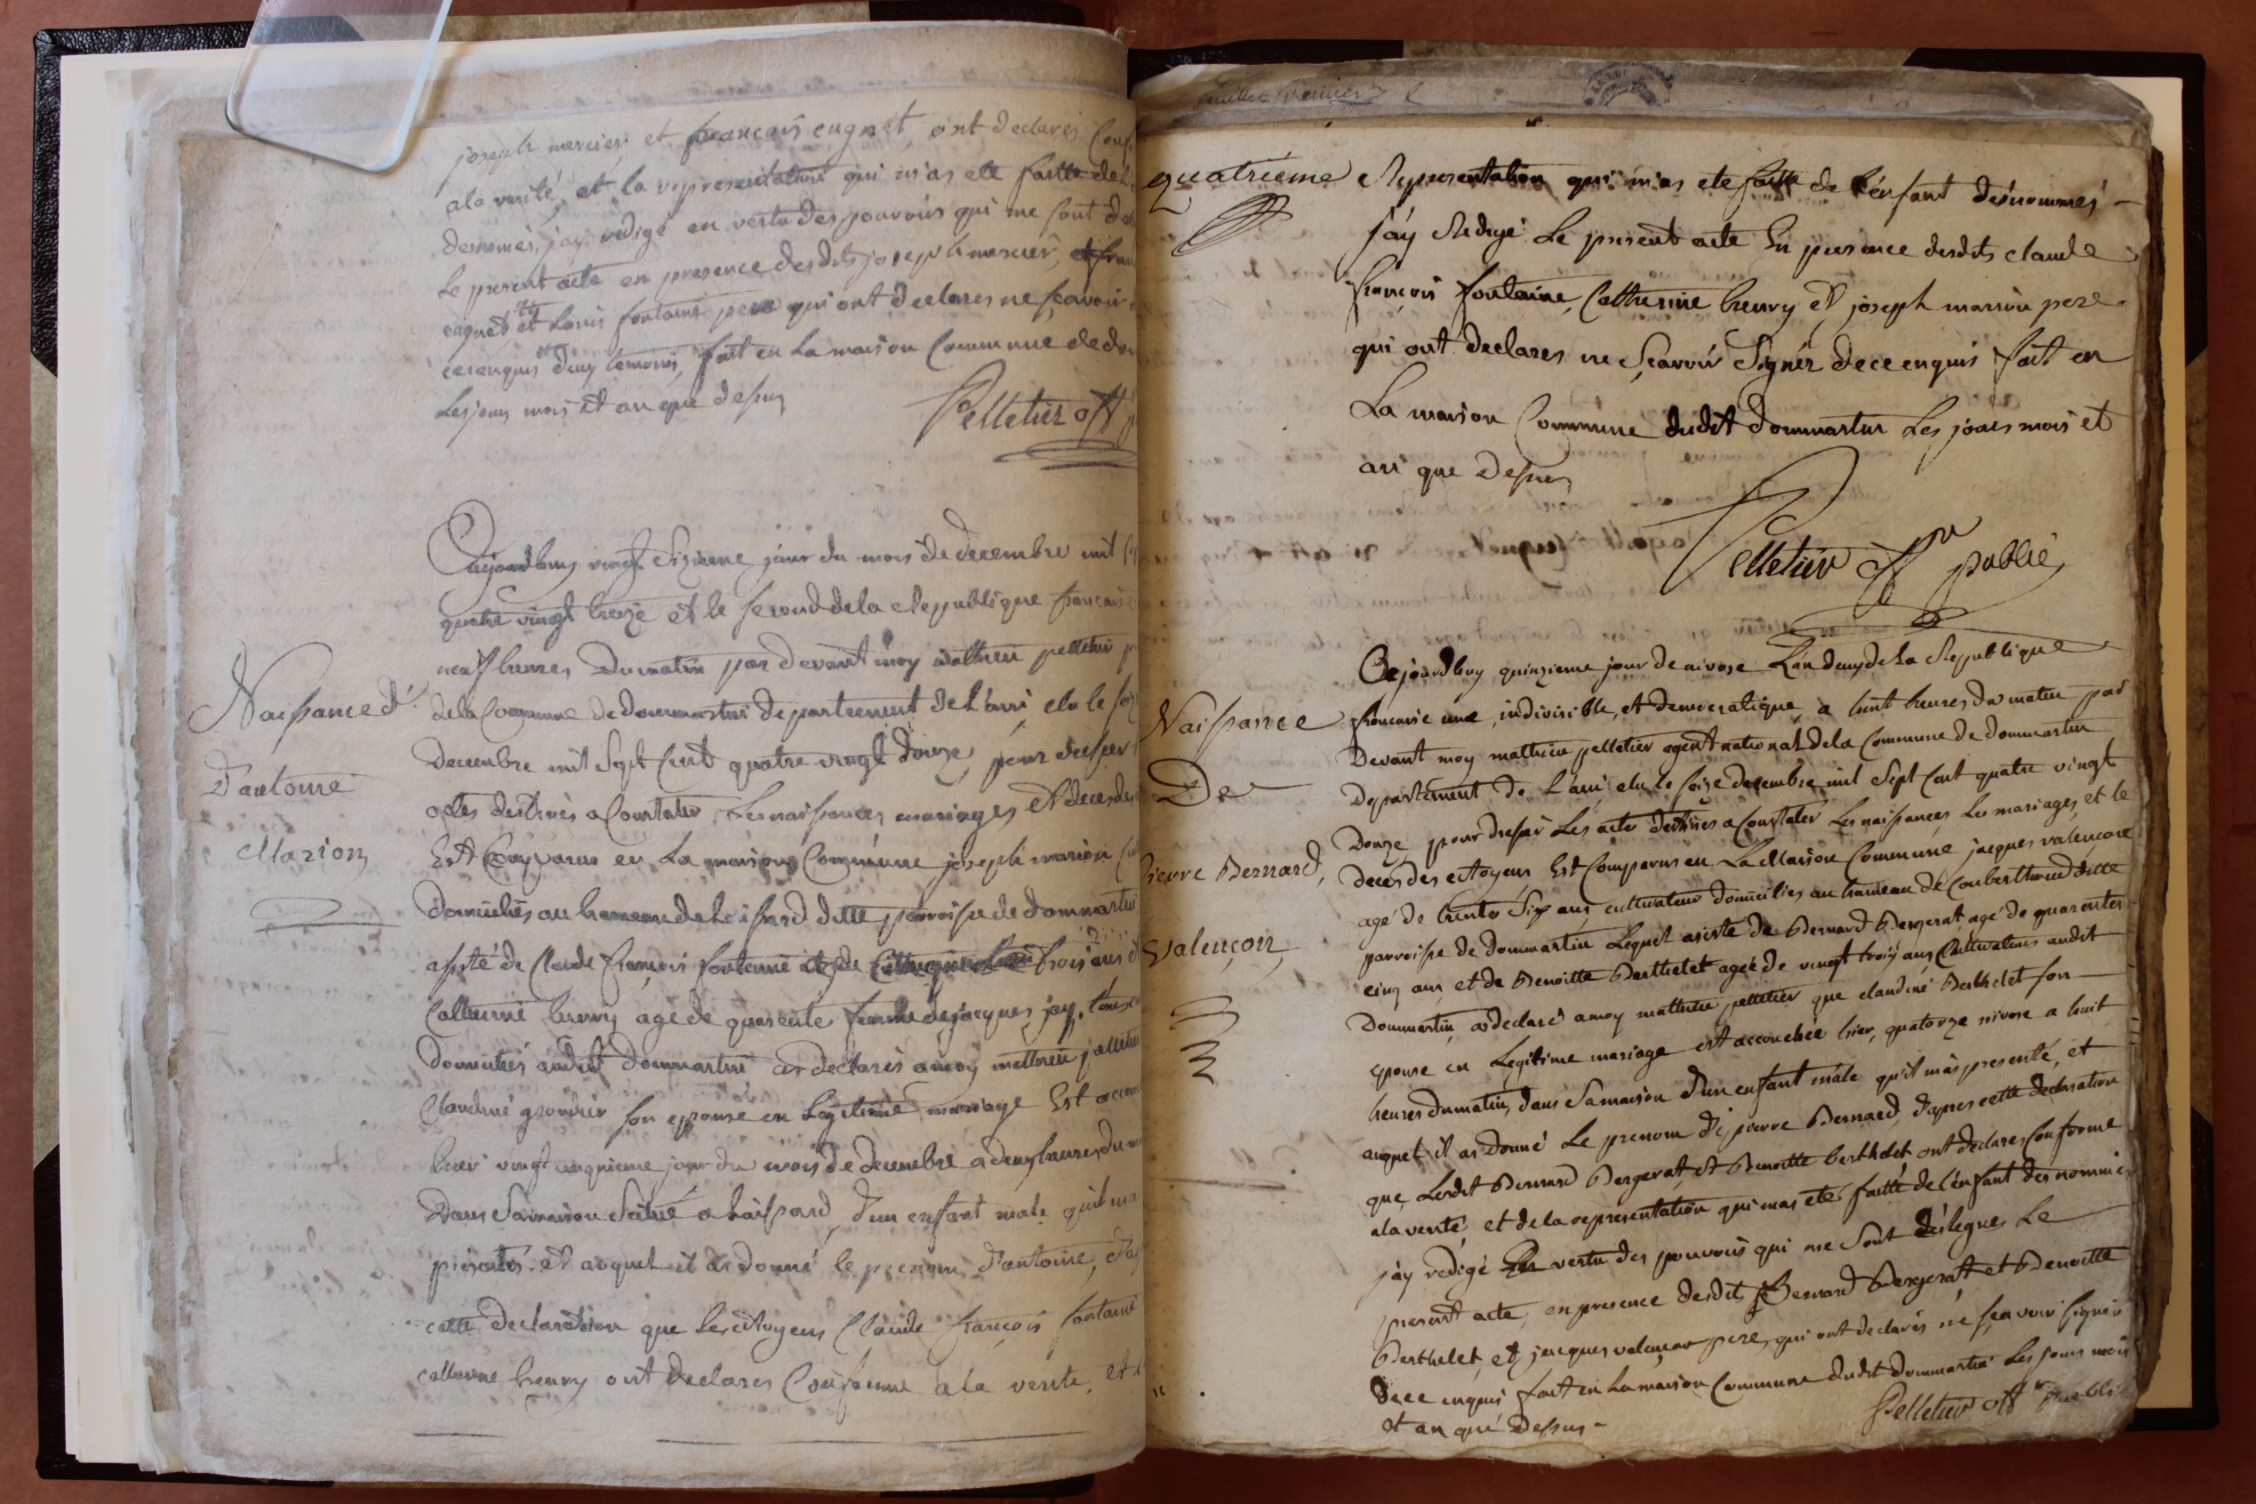 joseph mercier et francois cugnet, ont declarés
ala verité, et la representation qui m'as ete faitte de
denomés, j'ay redigé en vertu des pouvoirs qui me sont
Le present acte en presence des dits joseph mercier,
cugnet et Louis fontaine pere qui ont declares ne sçavoir
cecenquis deux temoins, fait en La maison Commune de
Les jour mois et an que dessus
Pelletier off
Cejourdhuy vingt Sixieme jour du mois de decembre mil
quatre vingt treize et le second dela Republique francaise
neuf heures Du matin par devant moy mathieu pelletier
dela Commune de dommartin departement de L'ain, elu le
decembre mil Sept Cent quatre vingt douze, pour dresser
actes destinés a Constater Les naissances mariages et deces des
Est Comparus en La maison Commune joseph marion
domiciliés au hameau de Loissard ditte parroisse de dommartin
assisté de Claude françois fontaine trois ans
Catherine henry agé de quarente femme de jacques jay,
domiciliés audit dommartin as declarés amoy mathieu pelletier
Claudine son epouse en legitime mariage Est
hier vingt cinquieme jour du mois de decembre a deux heures du
Dans Samaison a d'un enfant male qu'il ma
presentés et auquel il as donné le prenom d'antoine,
cette declaration que les citoyens Claude françois fontaine
catherine henry ont declares Conforme a la verite, et
Naissance d'
D'antoine
Marion
feuillet dernier
quatriéme Representation qui m'as ete faitte de l'enfant dénommés
j'ay Redigé Le present acte En presence desdits claude
françois fontaine, Catherine henry et joseph marion pere
qui ont declares ne Sçavoir Signér de ce enquis fait en
La maison Commune dudit dommartin Les jours mois et
an que dessus
Pelletier off publié
Cejourdhuy quinzieme jour de nivose L'an deux de La Republique
Naissance francaise une, indivisible, et democratique, a huit heures du matin par
Devant moy mathieu pelletier agent national dela Commune de dommartin
De Departement de L'ain, elu le seize decembre mil Sept Cent quatre vingt
Douze pour dresser Les actes destinés a Constater Les naissances Les mariages, et le
Pierre Bernard, deces des citoyens Est Comparus en La Maison Commune jacques valençon
agé de trente Six ans cultivateur domiciliés au hameau de ditte
Valençon parroisse de dommartin Lequel asisté de Bernard Bergerat agé de quarente
cinq ans et de Benoitte Berthelet ageé de vingt trois ans Cultivateurs audit
Dommartin, as declaré amoy mathieu pelletier que claudine Berthelet son
epouse en Legitime mariage est accouchée hier, quatorze nivose a huit
heures dumatin, dans Samaison d'un enfant mâle qu'il m'as presenté, et
auquel il as donné Le prenom de pierre Bernard, d'apres cette declaration
que, Lesdit Bernard Bergerat et Benoitte berthelet ont declares Conforme
ala verité, et dela representation qui mas eté faitté de l'enfant denommé
j'ay redigé En vertu des pouvoirs qui me Sont délegués Le
present acte, en presence desdits Bernard Bergerat et Benoitte
Berthelet, et jacques valençon pere, qui ont declarés ne sçavoir signer
De ce enquis fait en La maison Commune dudit dommartin Les jour mois
et an qué Dessus
Pelletier off publié